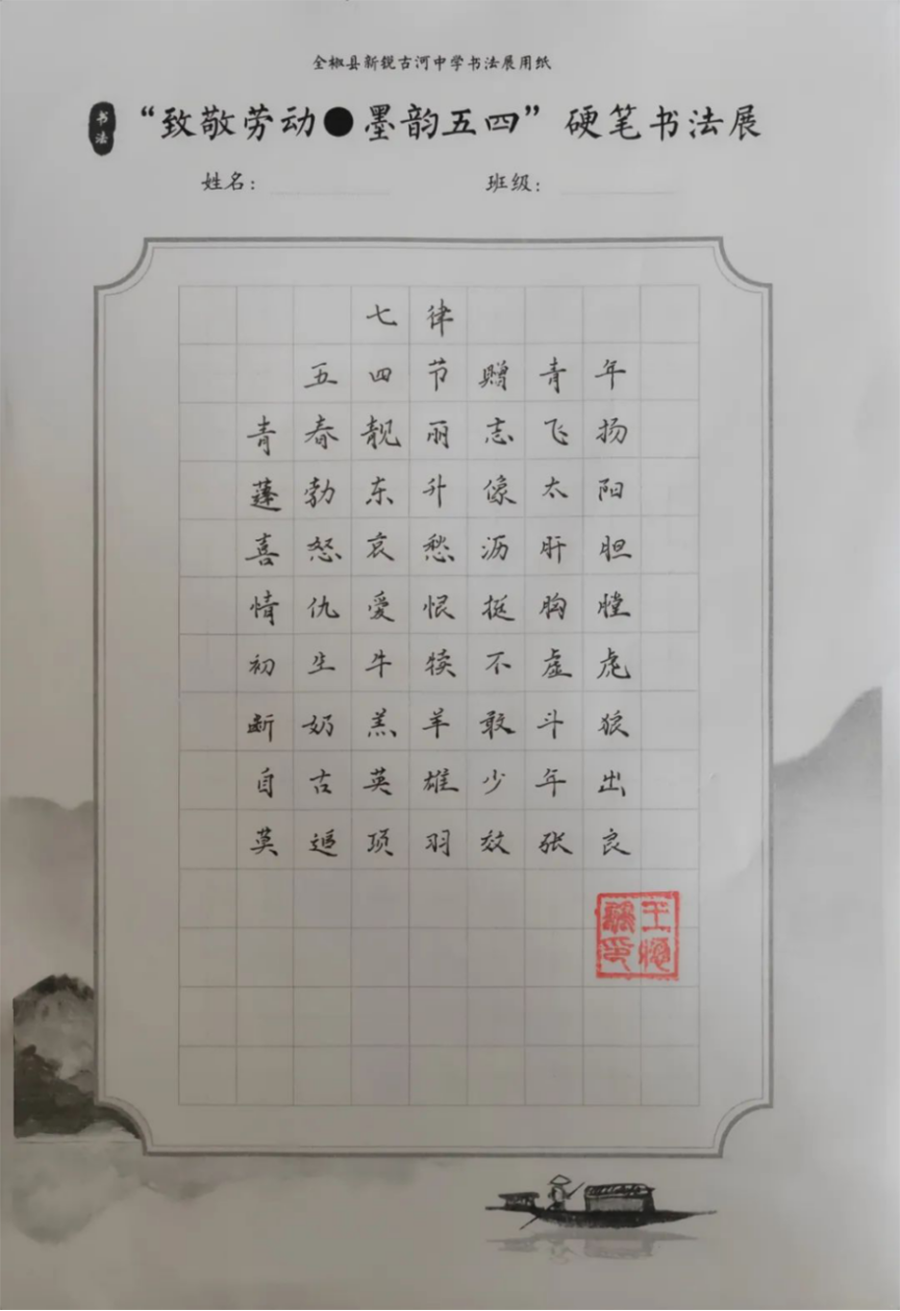 全椒县新锐古河中学书法展用纸
书法
“致敬劳动●墨韵五四”硬笔书法展
姓名： 班级：
七律
五四节赠青年
青春靓丽志飞扬
蓬勃东升像太阳
喜怒哀愁沥肝胆
情仇爱恨挺胸膛
初生牛犊不虚虎
断奶羔羊敢斗狼
自古英雄少年出
莫追项羽效张良